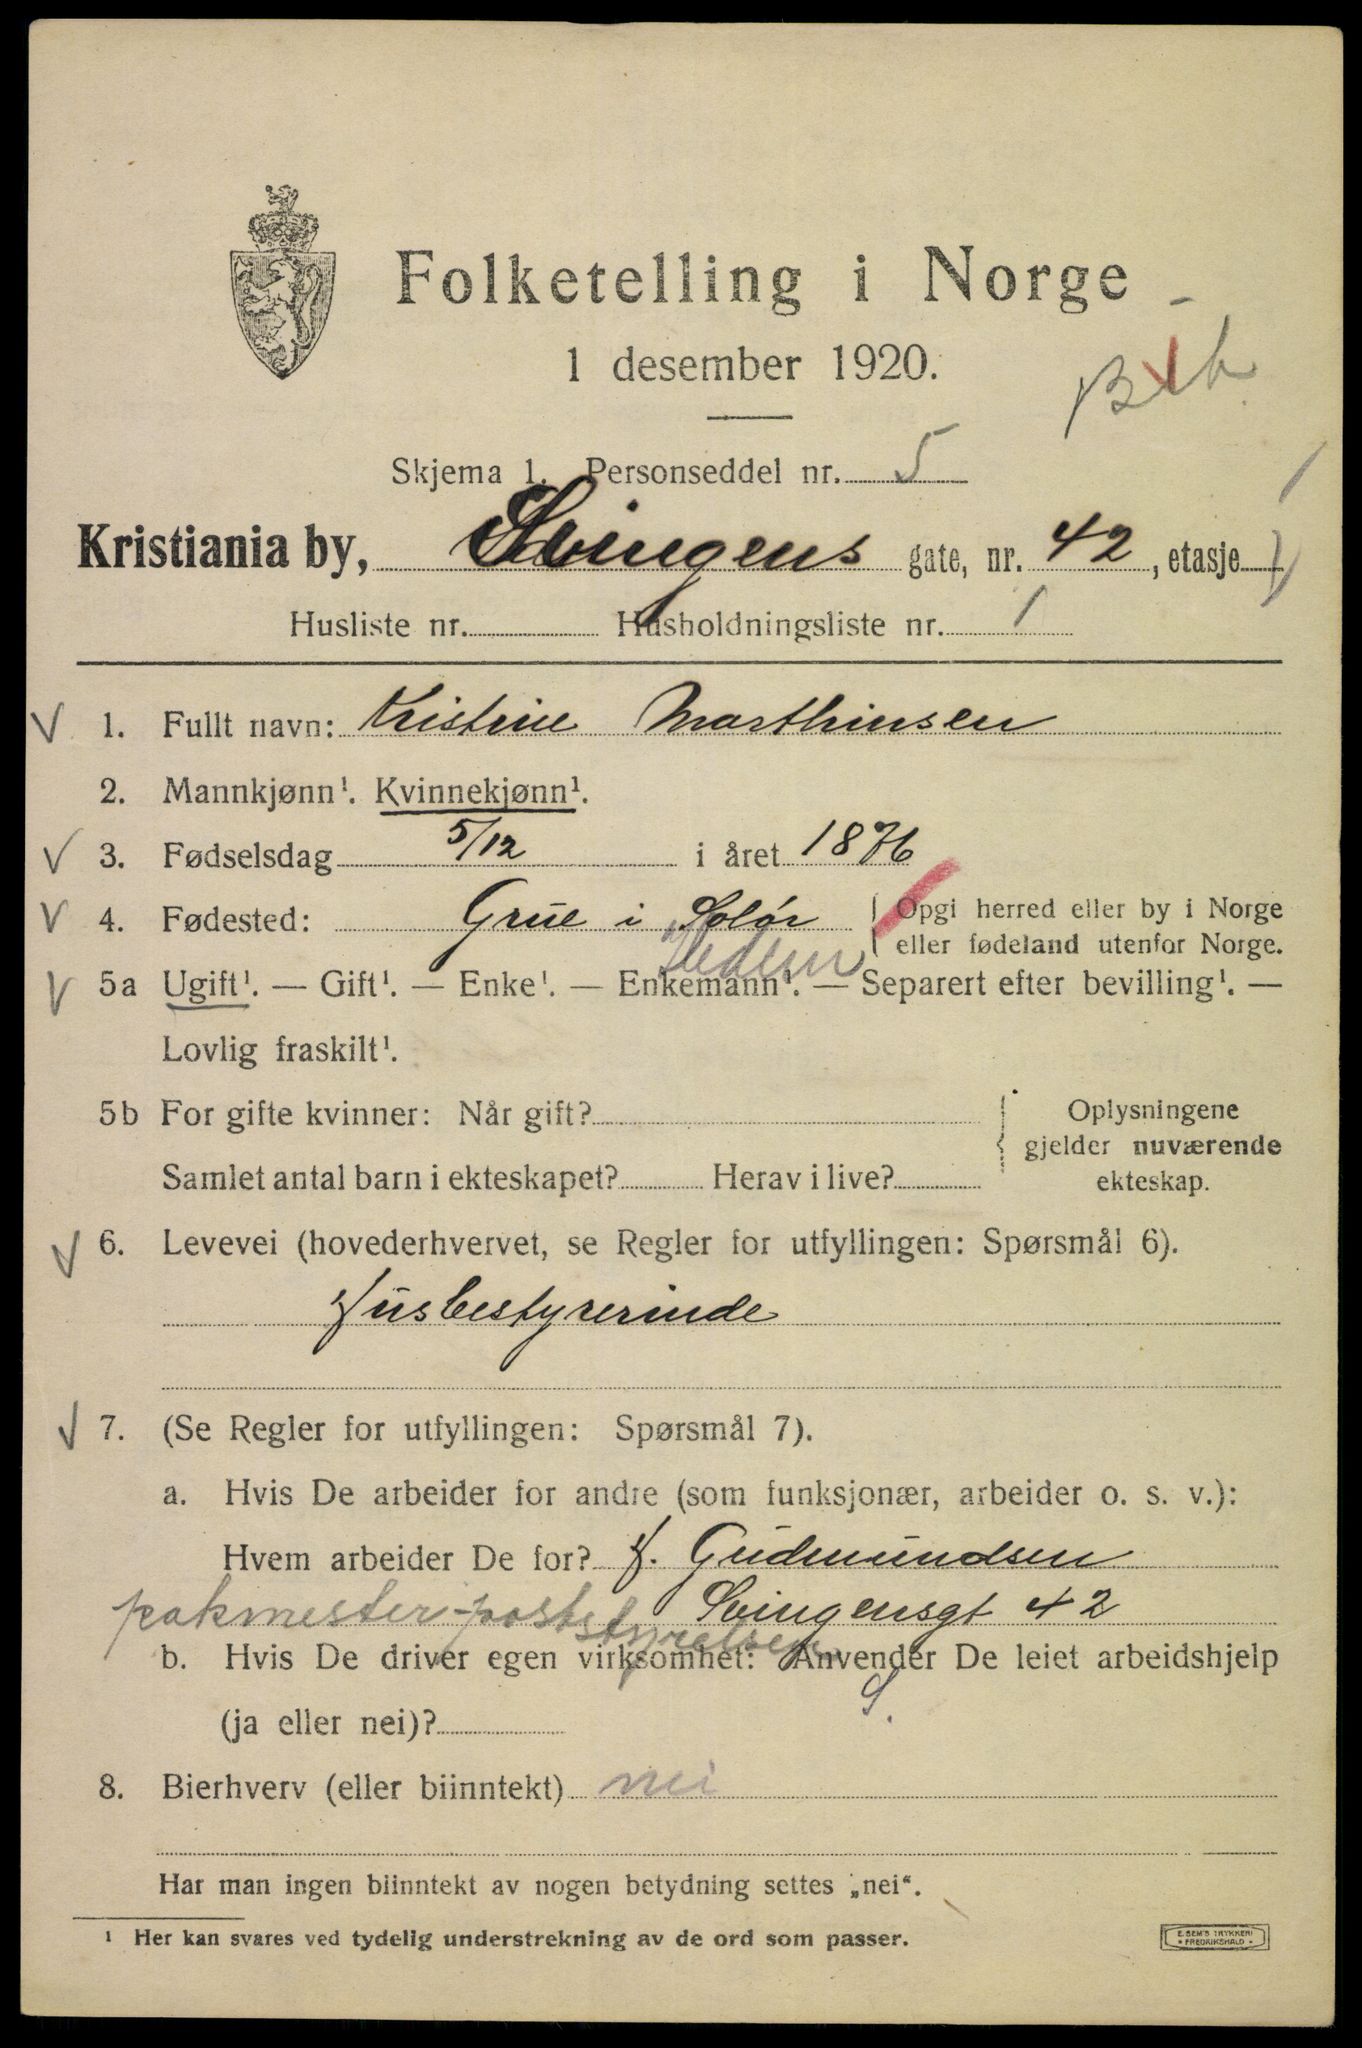 Folketelling i Norge
1 desember 1920.
Skjema 1. Personseddel nr. 5
Kristiania by, Svingens gate, nr. 42, etasje 1
Husliste nr. Husholdningsliste nr. 1
1. Fullt navn: Kristine Marthinsen
2. Mannkjønn¹. Kvinnekjønn¹.
3. Fødselsdag 5/12 i året 1876
4. Fødested: Grue i Solør { Opgi herred eller by i Norge
eller fødeland utenfor Norge.
Hedem
5a Ugift¹. — Gift¹. — Enke¹. — Enkemann¹. — Separert efter bevilling¹. —
Lovlig fraskilt¹.
5b For gifte kvinner: Når gift? { Oplysningene
gjelder nuværende
ekteskap.
Samlet antal barn i ekteskapet? Herav i live?
6. Levevei (hovederhvervet, se Regler for utfyllingen: Spørsmål 6).
Husbestyrerinde
7. (Se Regler for utfyllingen: Spørsmål 7).
a. Hvis De arbeider for andre (som funksjonær, arbeider o. s. v.):
Hvem arbeider De for? H. Gudmundsen
Svingensgt 42
pakmester poststyrelsen
b. Hvis De driver egen virksomhet: Anvender De leiet arbeidshjelp
S.
(ja eller nei)?
8. Bierhverv (eller biinntekt) nei
Har man ingen biinntekt av nogen betydning settes „nei“.
¹ Her kan svares ved tydelig understrekning av de ord som passer.
E. SEM'S TRYKKERI
FREDRIKSHALD